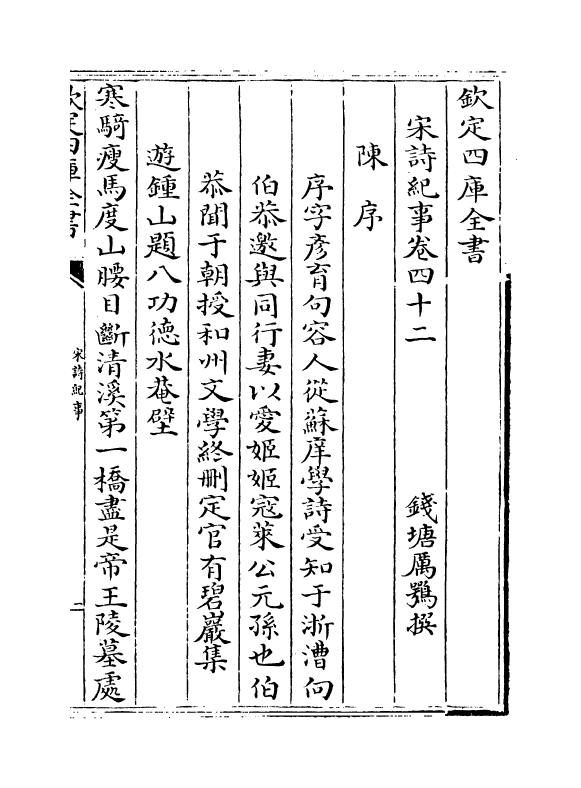 欽定四庫全書
宋詩紀事卷四十二
錢塘厲鶚撰
陳序
序字彥育句容人從蘇庠學詩受知于浙漕向
伯恭邀與同行妻以愛姬姬寇萊公元孫也伯
恭聞于朝授和州文學終刪定官有碧巖集
遊鍾山題八功德水菴壁
寒騎瘦馬度山腰目斷清溪第一橋盡是帝王陵墓處
欽定四庫全書
宋詩紀事